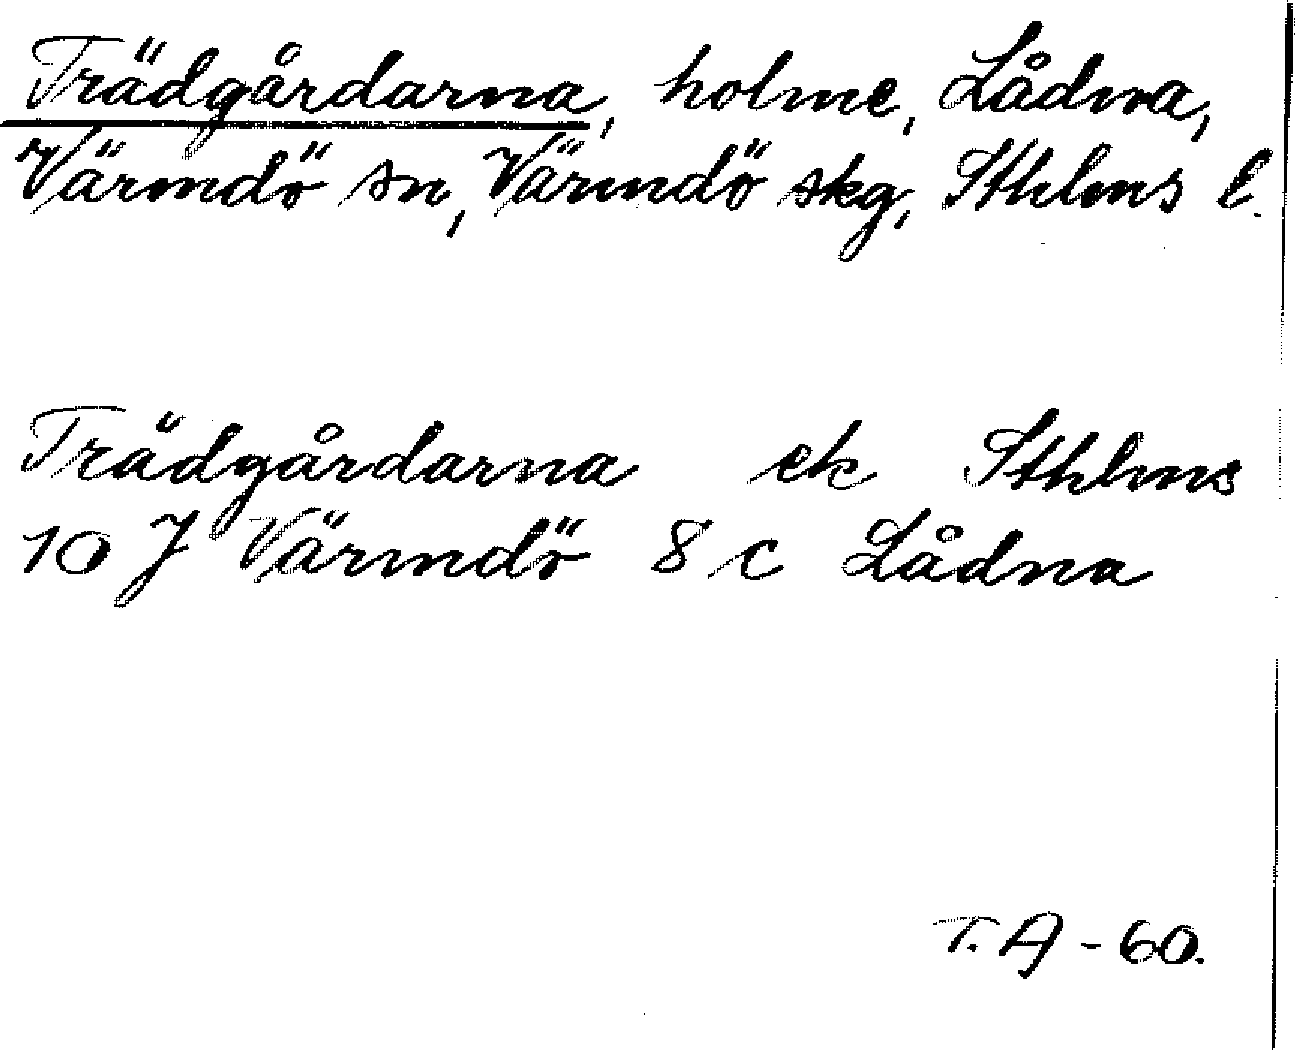 Trädgårdarna, holme, Lådna,
Värmdö sn, Värmdö skg, Sthlms l.
Trädgårdarna ek Sthlms
10 J Värmdö 8 c Lådna
T. A - 60.